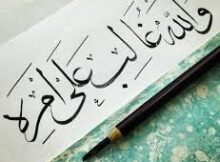 وَاللَّهُ غَالِبٌ عَلَىٰ أَمْرِهِ